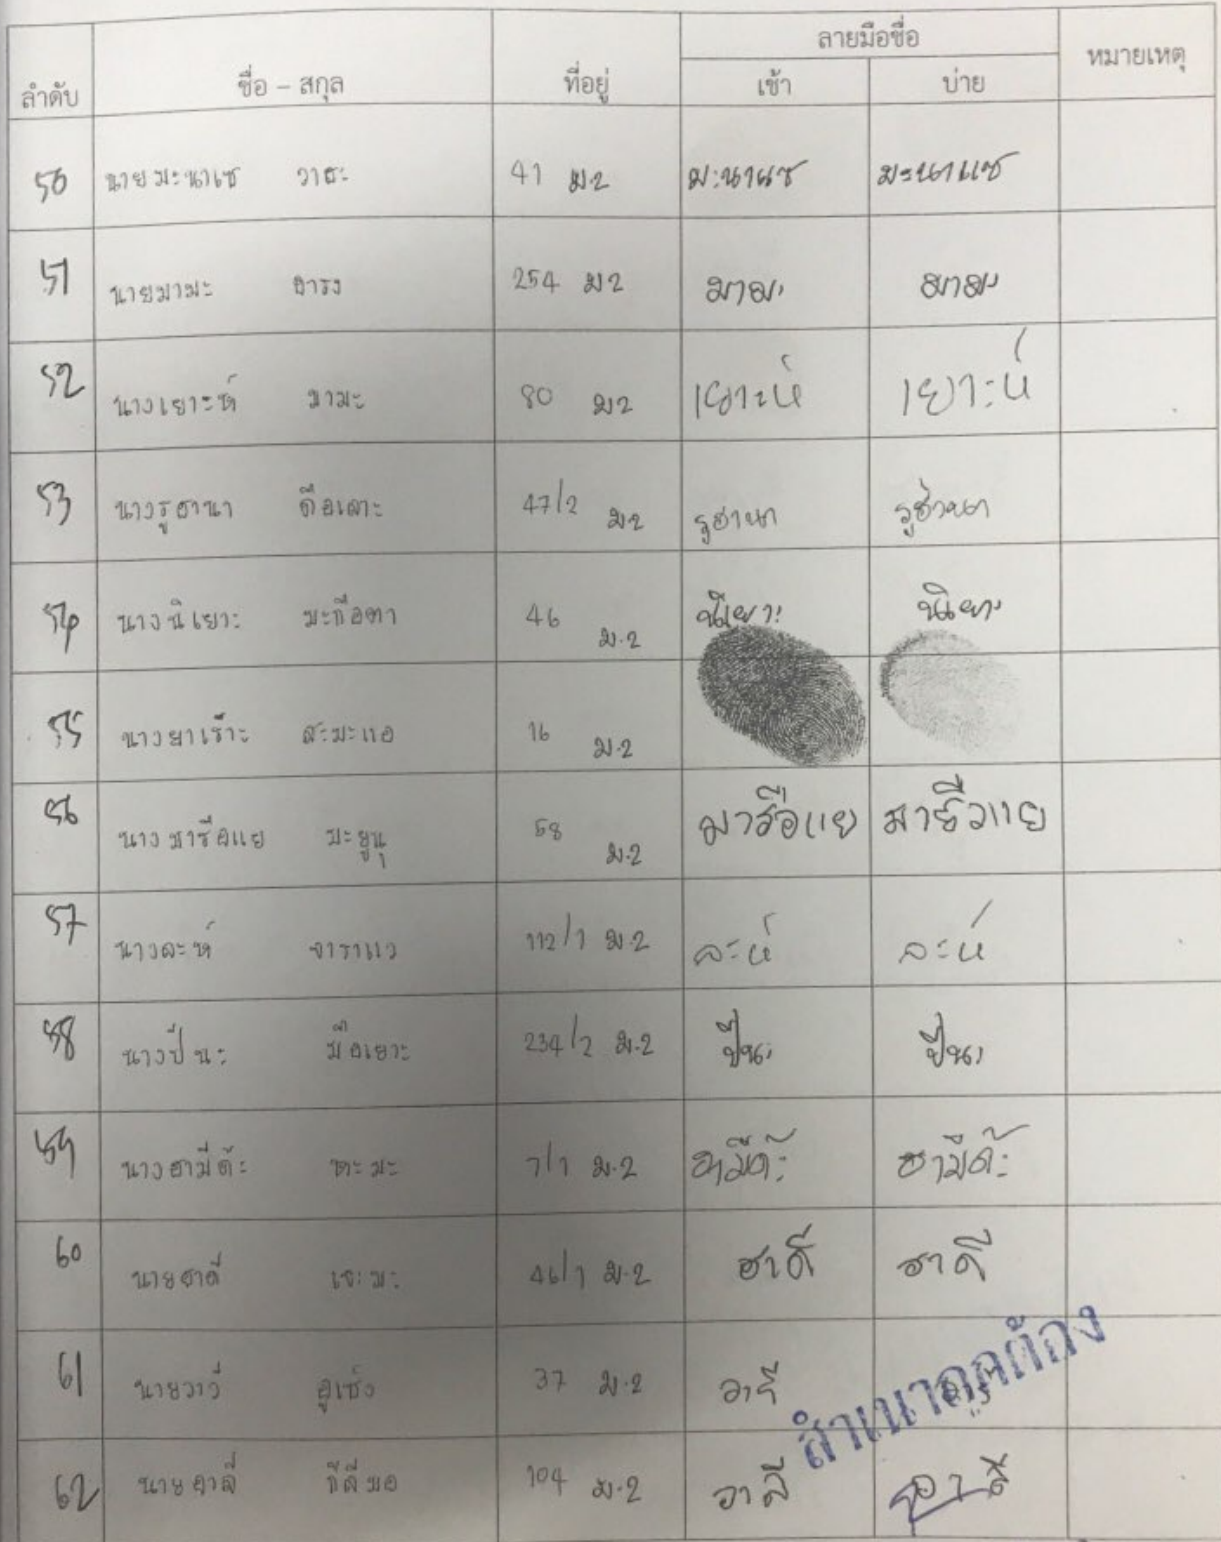 ลำดับ ชื่อ - สกุล ที่อยู่ ลายมือชื่อ หมายเหตุ
เช้า บ่าย
50 นายมะนาเซ วาธะ 41 ม.2 มะนาแซ มะนาแซ
51 นายมามะ 254 ม2 มามะ มามะ
52 นางเยาะห์ มามะ 80 ม2 เยาะห์ เยาะห์
53 นางรูฮานา ดือเลาะ 47/2 ม.2 รูฮานา รูฮานา
54 นางนิเยาะ มะกือตา 46 ม.2 นิเยาะ นิเยาะ
55 สะมะแอ 16 ม.2
56 นางมารีอแย มะยูนุ 58 ม.2 มารือแย
57 นางละห์ 112/1 ม.2 ละห์ ละห์
58 นางปีนะ มือเยาะ 234/2 ม.2 ปีนะ ปีนะ
59 นางฮามีด๊ะ 7/1 ม.2 ฮามีด๊ะ ฮามีด๊ะ
60 นายฮาดี เจะมะ 46/1 ม.2 ฮาดี ฮาดี
61 นายวาวี อูเซ็ง 37 ม.2
62 นายอาลี กีลีมอ 104 ม.2 อาลี อาลี
สำเนาถูกต้อง